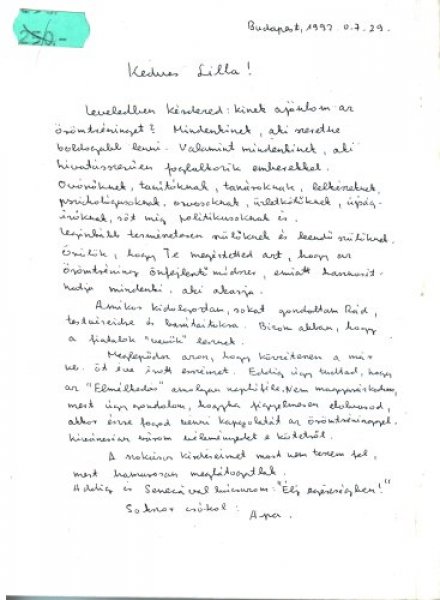 250.-
Budapest, 1992. 07. 29.
Kedves Lilla!
Leveledben kérdezed: kinek ajánlom az
örömtréninget? Mindenkinek, aki szeretne
boldogabb lenni. Valamint mindenkinek, aki
hivatásszerűen foglalkozik emberekkel.
Óvónőknek, tanítóknak, tanároknak, lelkészeknek,
pszichológusoknak, orvosoknak, üzletkötőknek, újság-
íróknak, sőt még politikusoknak is.
Leginkább természetesen szülőknek és leendő szülőknek.
Örülök, hogy Te megértetted azt, hogy az
örömtréning önfejlesztő módszer, emiatt hasznosít-
hatja mindenki, aki akarja.
Amikor kidolgoztam, sokat gondoltam Rád,
testvéreidre és barátaitokra. Bízom abban, hogy
a fiatalok "vevők" lesznek.
Meglepődsz azon, hogy közreteszem a már
öt éve írott esszéimet. Eddig úgy tudtad, hogy
az "Elmélkedés" amolyan naplóféle. Nem magyarázkodom,
mert úgy gondolom, hogyha figyelmesen elolvasod,
akkor észre fogod venni kapcsolatát az örömtréninggel.
Kíváncsian várom véleményedet a kötetről.
A szokásos kérdéseimet most nem teszem fel,
mert hamarosan meglátogatlak.
Addig is Senecával búcsúzom: "Élj egészségben!"
Sokszor csókol:
Apa.